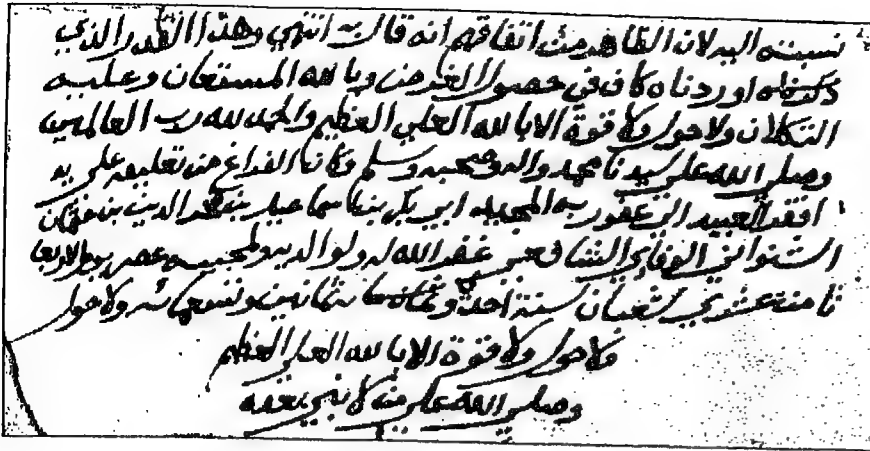 نسبته اليه لان الظاهر من اتفاقهم انه قال به انتهي وهذا القدر الذي
اوردناه كاف في حصول الغرض وبالله المستعان وعليه
التكلان ولا حول ولا قوة الا بالله العلي العظيم والحمد لله رب العالمين
وصلي الله علي سيدنا محمد واله وصحبه وسلم وكان الفراغ من تعليقه علي يد
افقر العبيد الي عفو ربه المجيد ابي بكر بن اسماعيل بن الدين بن عثمان
الشنواني الوفاي الشافعي غفر الله له ولوالديه ولمحبيه عصر يوم الاربعا
ثامن عشري شعبان سنة احدي وثمانين وتسعمائة ولا حول
ولا حول ولا قوة الا بالله العلي العظيم
وصلي الله علي من لا نبي بعده